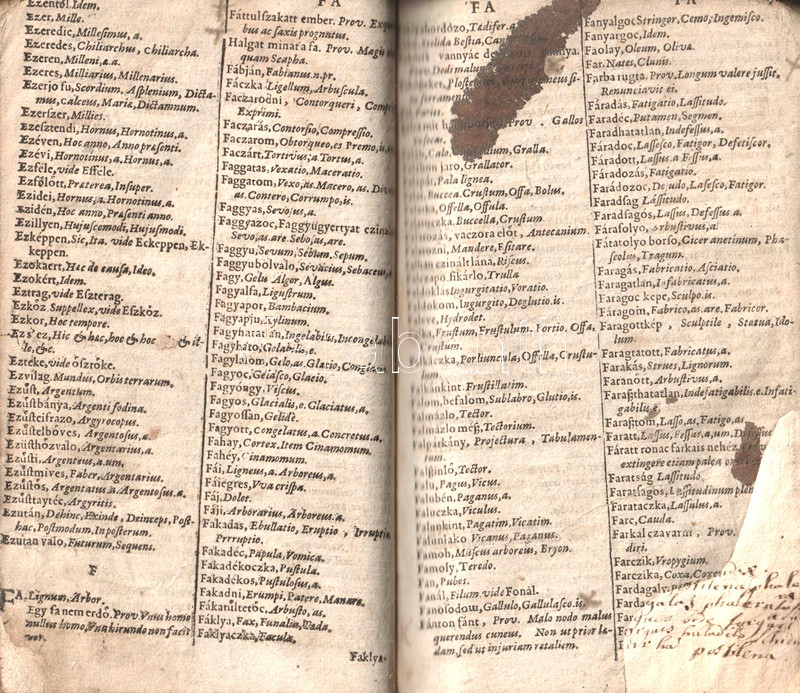 Ezentől. Idem.
Ezer, Mille.
Ezeredic, Millesimus, a.
Ezeredes, Chiliarchus, Chiliarcha.
Ezeren, Milleni, æ.a.
Ezeres, Milliarius, Millenarius.
Ezerjo fu, Scordium. Asplenium, Dicta-
mus, calceus, Maria, Dictamnum.
Ezerszer, Millies.
Ezesztendi, Hornus, Hornotinus, a.
Ezéven, Hoc anno, Anno præsenti.
Ezévi, Hornotinus, a. Hornus, a.
Ezféle, vide Efféle.
Ezfölött, Præterea, Insuper.
Ezidei, Hornus, a. Hornotinus. a.
Ezidén, Hoc anno, Præsenti anno.
Ezillyen, Hujuscemodi, Hujusmodi.
Ezképpen, Sic, Ita. vide Eckeppen, Ek-
keppen.
Ezokaert, Hac de causa, Ideo.
Ezokért, Idem.
Eztrag, vide Eszterag.
Ezköz, Suppellex, vide Eszköz.
Ezkor, Hoc tempore.
Ez s' ez, Hic & hac, hoc & hoc
Eztéke, vide őszröke.
Ezvilág, Mundus, Orbis terrarum.
Ezűst, Argentum.
Ezűstbánya, Argenti fodina.
Ezűstcifrazo, Argyrocopus.
Ezűstelbőves, Argentosus, a.
Ezűsthózvalo, Argentarius, a.
Ezűsti, Argenteus, a. um,
Ezűstmives, Faber, Argentarius.
Ezűstős, Argentatus, a. Argentosus. a.
Ezűsttaytéc, Argyritis.
Ezután, Dehinc, Exinde, Deinceps, Post-
hac, Postmodum, In posterum.
Ezutan valo, Futurum, Sequens.
F
FA, Lignum, Arbor.
Egy fa nem erdő. Prov. Vnus homo
nullus homo, Vna hirundo non facit
ver.
FA
Fáttul szakatt ember. Prov.
bus ac saxis prognatus.
Halgat minta fa. Prov. Magis
quam Scapha.
Fábján, Fabianus. n.pr.
Fáczka, Ligellum, Arbuscula.
Faczarodni, Contorqueri,
Exprimi.
Faczarás, Contorsio, Compressio.
Faczarom, Obtorqueo, es Premo,
Faczárt, Tortivus, a. Tortus, a.
Faggatas, Vexatio, Maceratio.
Faggatom, Vexo, as. Macero, as.
as. Contero, Corrumpo, is.
Faggyas, Sevosus, a.
Faggyazoc, Faggyúgyertyat
Sevo, as. are. Sebo, as, are.
Faggyu, Sevum, Sebum. Sepum.
Faggyubolvalo, Sevacius, Sebaceus,
Fagy, Gelu Algor, Algus.
Fagyalfa, Ligustrum.
Fagyapor, Bambacium.
Fagyapju, Xylinum.
Fagyhatatlán, Ingelabilis,
Fagyható, Gelabilis, e.
Fagylalom, Gelo, as. Glacio,
Fagyoc, Geiasco, Glacio.
Fagyöngy, Viscus.
Fagyos, Glacialis, e. Glaciatus, a.
Fagyossan, Gelidè.
Fagyott, Congelatus, a. Concretus, a.
Fahay, Cortex. Item Cinamomum.
Fahéy, Cinamomum.
Fái, Ligneus, a. Arboreus, a.
Fáiégres, Vva crispa.
Fáj, Dolet.
Fáji, Arborarius, Arboreus. a.
Fakadas, Ebullatio, Eruptio, Irruptio,
Prrruptio.
Fakadéc, Papula, Vomica.
Fakadékoczka, Pustula.
Fakadékos, Pustulosus, a.
Fakadni, Erumpi, Patere, Manare.
Fákatültetőc, Arbusto, as.
Fáklya, Fax, Funalia, Tæda.
Fáklyaczka, Facula.
Faklya-
FA
Tædifer, a.
Bestia,
vannyác de
Dedi malum
Prov. Gallos
Gralla.
Grallator.
Pala lignea.
Buccea. Crustum, Offa, Bolus.
Offella, Offula.
Buccella, Crustum
vaczora elött, Antecænium.
Mandere, Esitare.
czináltlána, Riscus.
sikárlo, Trulla
Ingurgitatio, Voratio.
Ingurgito, Deglutio. is.
Hydrodet.
Frustum, Frustulum. Portio, Offa,
Crustum.
Portiuncula, Offella, Crustu-
lum.
Frustillatim.
befalom, Sublabro, Glutio, is.
Tector.
més, Tectorium.
Projectura, Tabulamen-
tum.
Tector.
Pagus, Vicus.
Paganus, a.
Viculus.
Pagatim, Vicatim.
Vicanus, Paganus.
Famoh, Muscus arboreus, Bryon.
Famoly, Teredo.
Fan, Pubes.
Fanál, Filum. vide Fonál.
Fanofodom, Gallulo, Gallulasco. is.
Fanton fánt, Prov. Malo nodo malus
quærendus cuneus. Non ut prior læ-
dam, sed ut injuriam retaliem.
FA
Fanyalgoc, Stringor, Gemo, Ingemisco.
Fanyargoc, Idem.
Faolay, Oleum, Oliva.
Far, Nates, Clunis.
Farba rugta, Prov. Longum valere jussit,
Renunciavit ei.
Fáradás, Fatigatio, Lassitudo.
Faradéc, Putamen, Segmen.
Fáradhatatlan, Indefessus, a.
Fáradoc, Lassesco, Fatigor, Defetiscor.
Fáradott, Lassus. a Fessus, a.
Fáradozás, Fatigatio.
Farádozoc, Desudo, Lasesco, Fatigor.
Faradság, Lassitudo.
Faradságos, Lassus, Defessus. a.
Fárafolyo, Arbustivus, a.
Fátatolyo borso, Gicer anetinum, Pha-
seolus, Tragum.
Faragás, Fabricatio, Asciatio.
Faragatlan, Infabricatus, a.
Faragoc kepe, Sculpo. is.
Faragoin, Fabrico, as. are, Fabricor.
Faragottkép, Sculptile, Statua, Ido-
lum.
Faragtatott, Fabricatus, a.
Farakás, Strues, Lignorum.
Faranött, Arbustivus, a.
Faraszthatatlan, Indefatigabilis, e. Infati-
gabilis, e.
Farasztom, Lasso, as, Fatigo, as
Faratt, Lassus, Fessus, a, um, Defessus
Fáratt ronac farkais nehéz,
extingere etiam palea
Faratság, Lassitudo.
Faratságos, Lassitudinum plen
Farataczka, Lassulus, a.
Farc, Cauda.
Farkal czavarni, Prov.
diri.
Farczik, Vropygium.
Farczika, Coxa, Coxend
Fardagaly, postilena
postilena